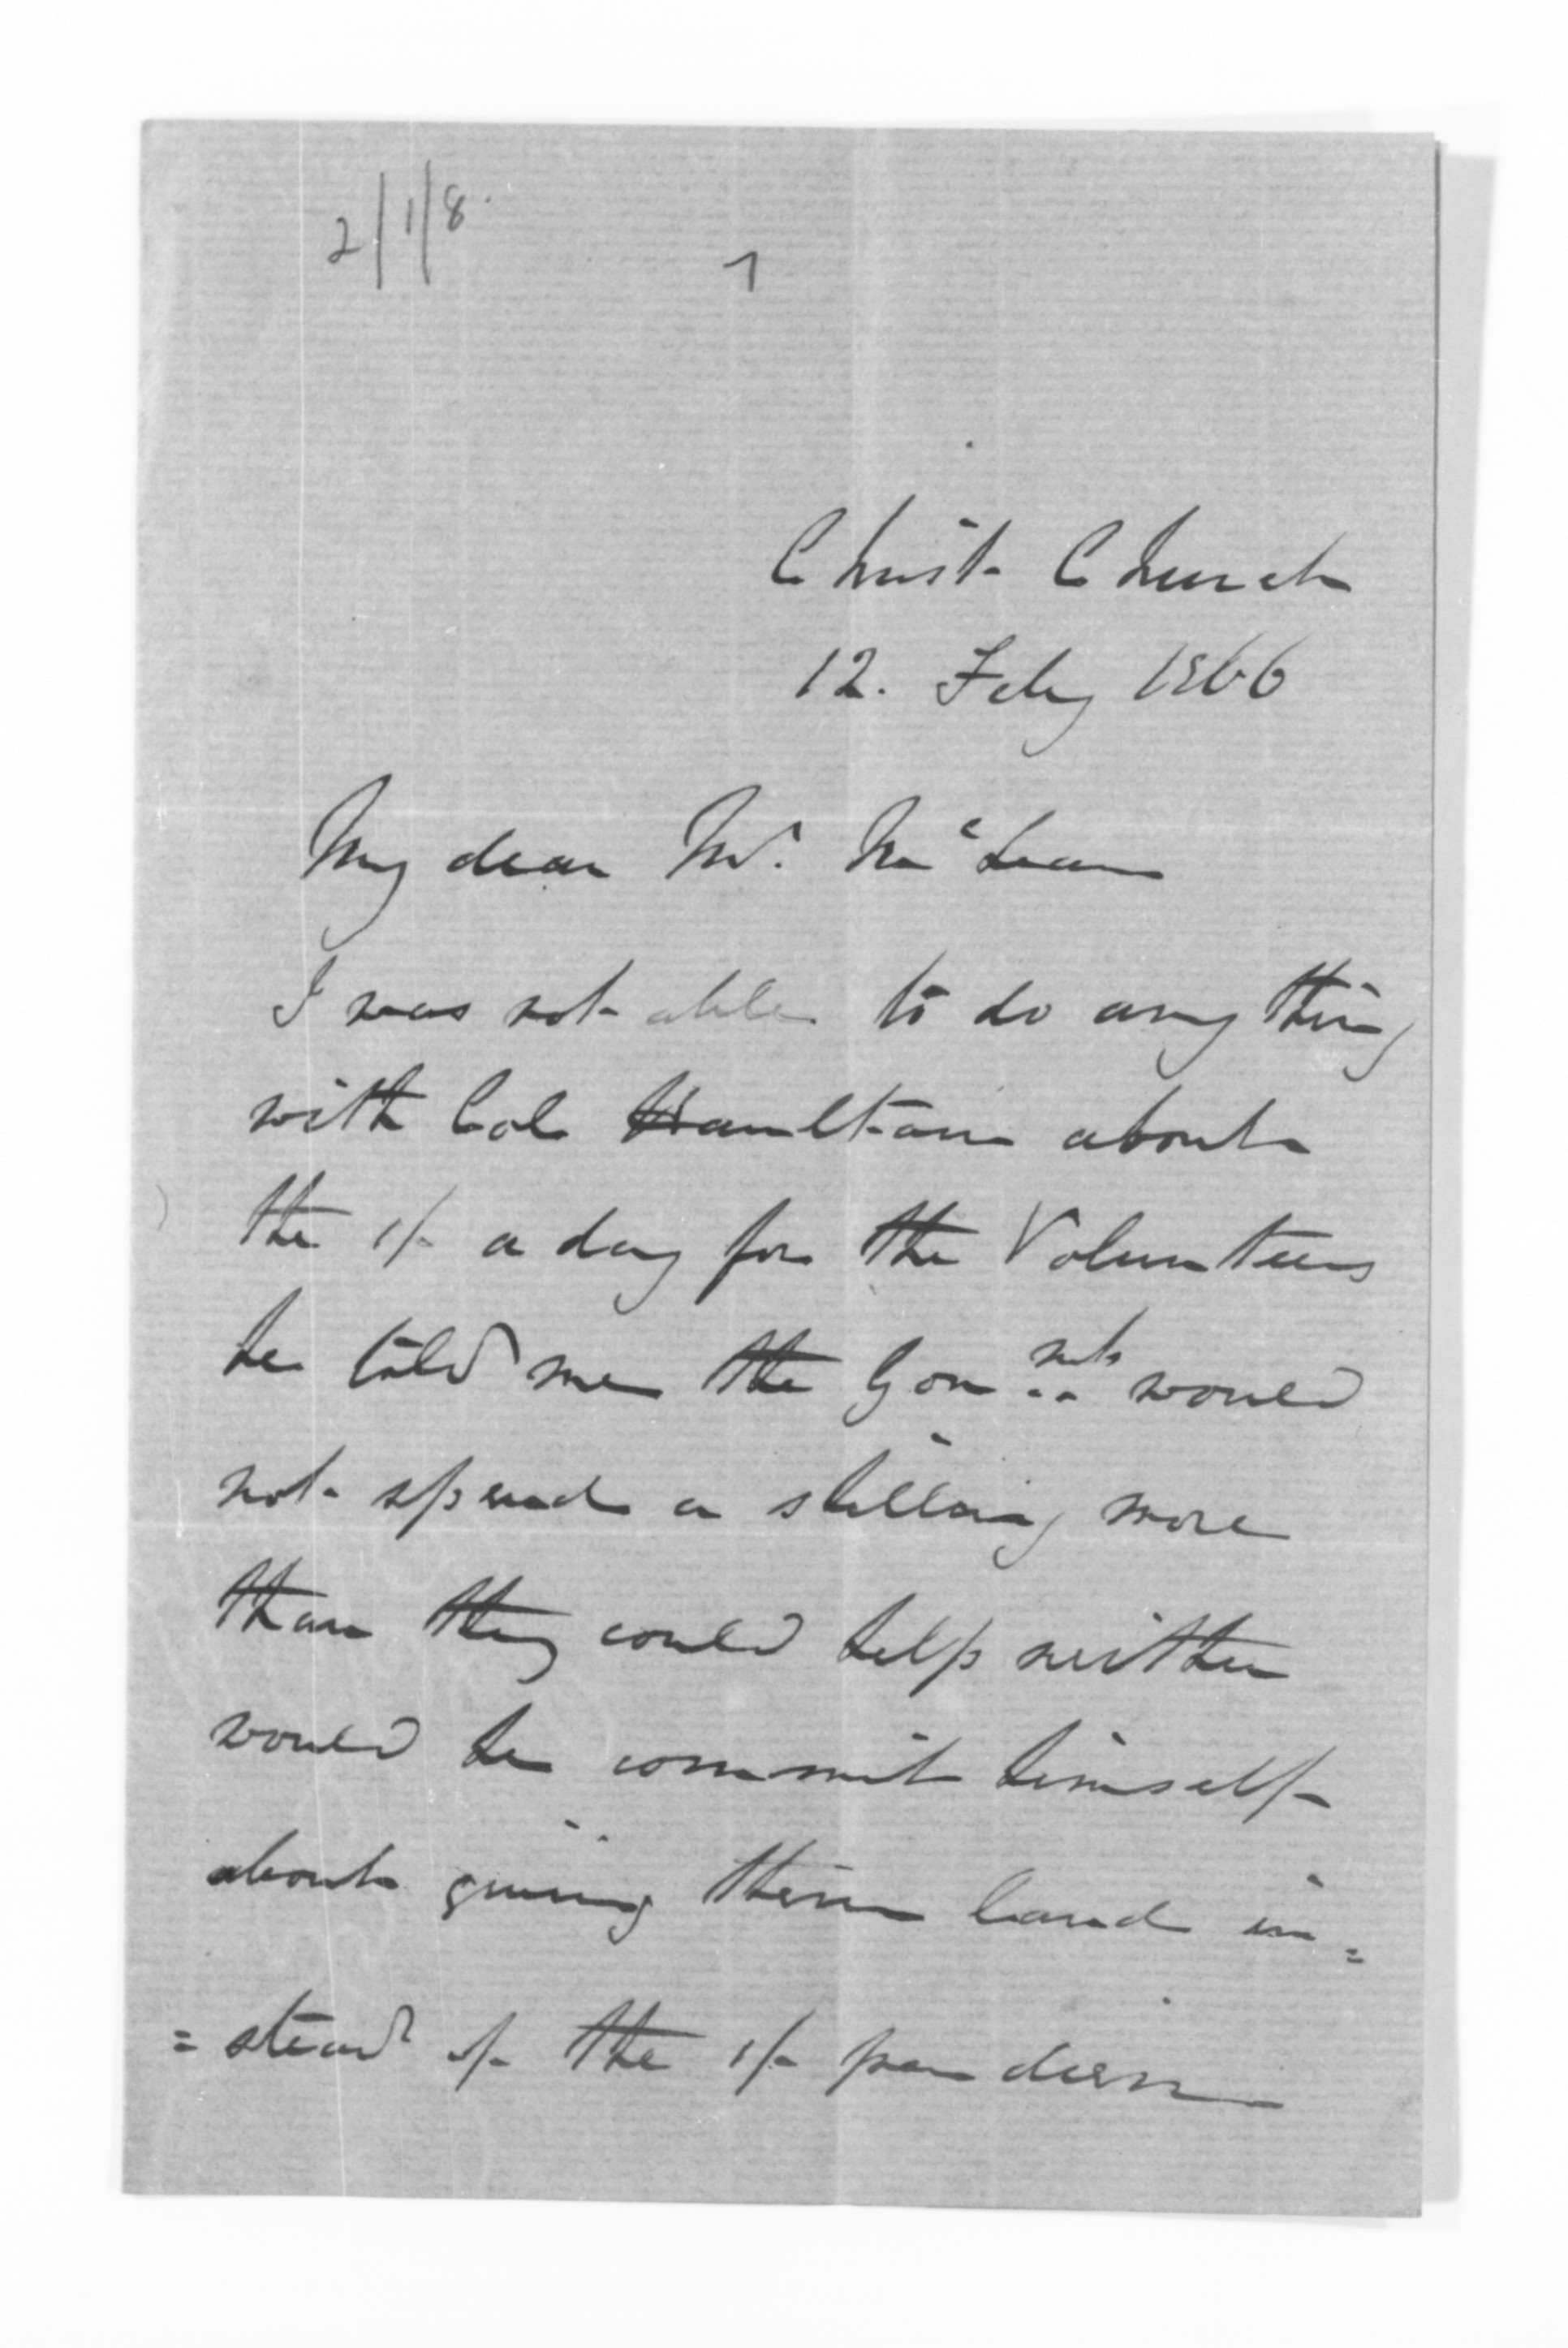 2/1/8.
1
Christ Church
12. Feby 1866
My dear Mr. McLean
I was not able to do any thing
with Col Haultain about
the 1/- a day for the Volunteers
he told me the Govmt. would
not spend a shilling more
than they could help neither
would he commit himself
about giving them land in=
=stead of the 1/- per diem